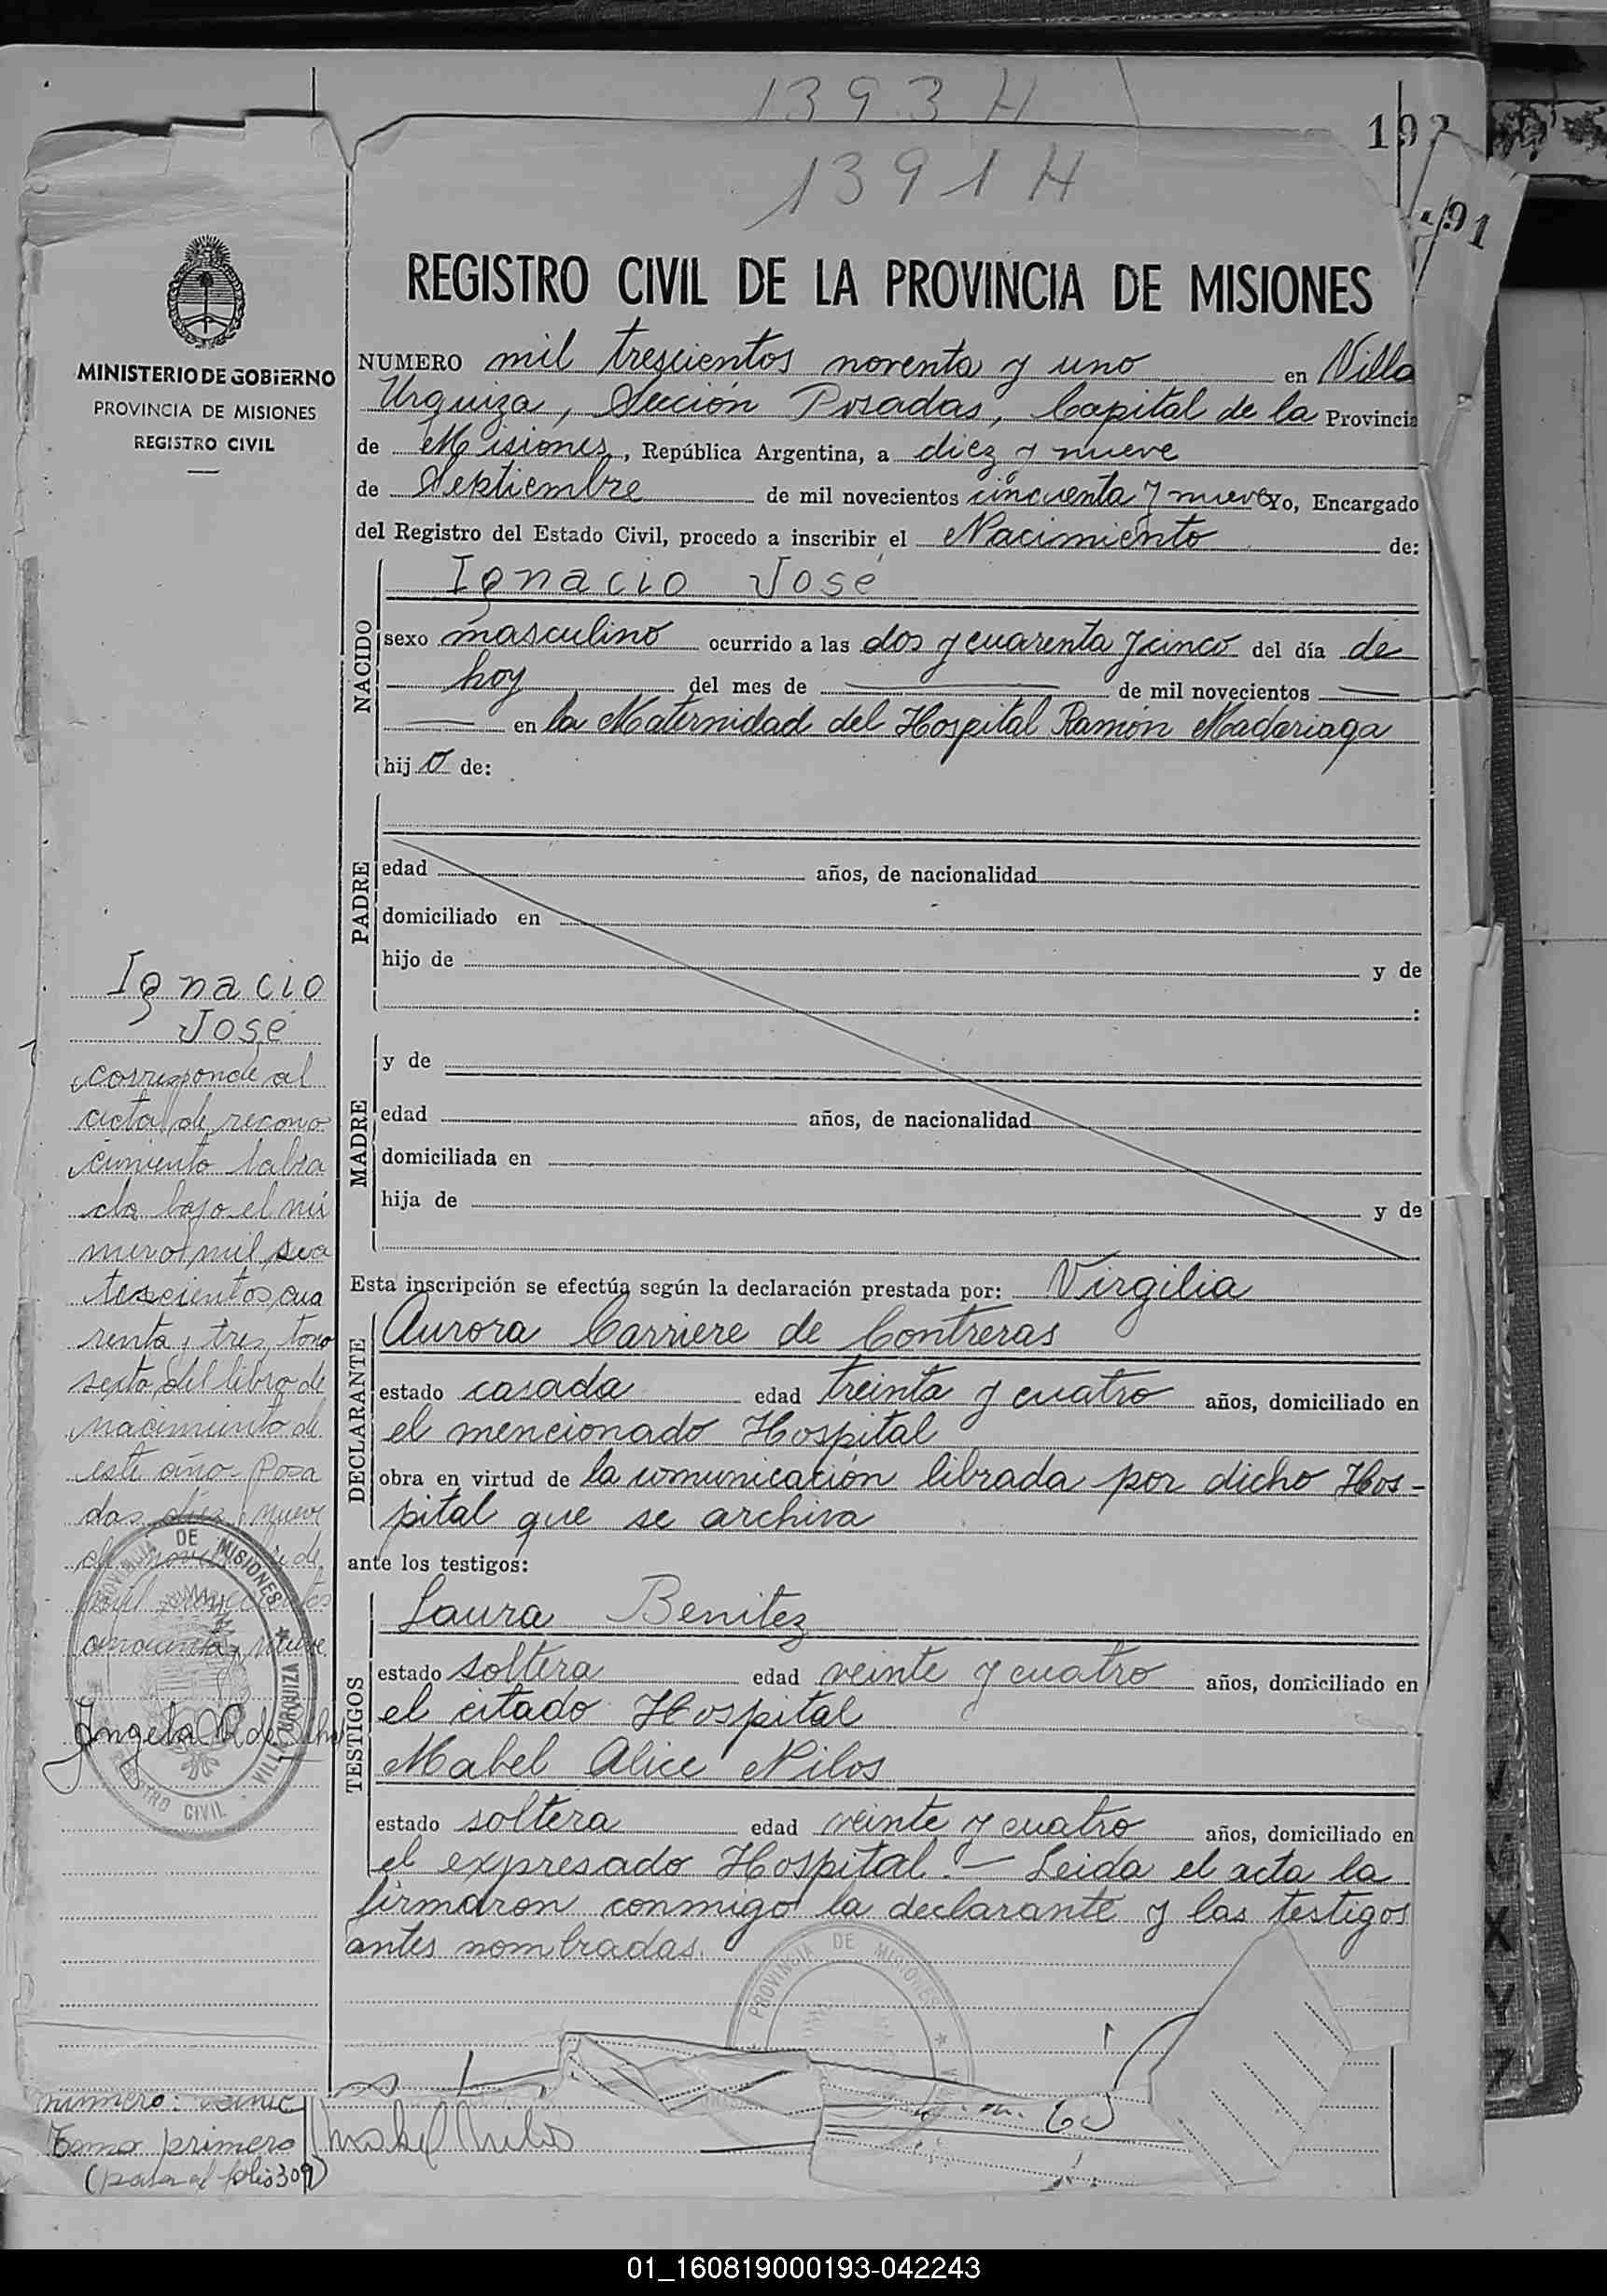 1393 H
192
1391 H
191
REGISTRO CIVIL DE LA PROVINCIA DE MISIONES
MINISTERIO DE GOBIERNO
PROVINCIA DE MISIONES
REGISTRO CIVIL
NUMERO mil trescientos noventa y uno en Villa
Urquiza, Sección Posadas, Capital de la Provincia
de Misiones, República Argentina, a diez y nueve
de Septiembre de mil novecientos cincuenta y nueve Yo, Encargado
del Registro del Estado Civil, procedo a inscribir el Nacimiento de:
NACIDO
Ignacio José
sexo masculino ocurrido a las dos y cuarenta y cinco del día de
hoy del mes de de mil novecientos
en la Maternidad del Hospital Ramón Madariaga
hijo de:
PADRE
edad años, de nacionalidad
domiciliado en
hijo de y de
:
MADRE
y de
edad años, de nacionalidad
domiciliada en
hija de y de
Esta inscripción se efectúa según la declaración prestada por: Virgilia
DECLARANTE
Aurora Carriere de Contreras
estado casada edad treinta y cuatro años, domiciliado en
el mencionado Hospital
obra en virtud de la comunicación librada por dicho Hos-
pital que se archiva
ante los testigos:
TESTIGOS
Laura Benitez
estado soltera edad veinte y cuatro años, domiciliado en
el citado Hospital
Mabel Alice Nilos
estado soltera edad veinte y cuatro años, domiciliado en
el expresado Hospital. — Leida el acta la
firmaron conmigo la declarante y las testigos
antes nombradas.
PROVINCIA DE MISIONES
Ignacio
José
corresponde al
acta de recono
cimiento labra
da bajo el nú
mero mil
tescientos cua
renta y tres, tomo
sexto del libro de
nacimiento de
este año - Posa
das diez y nueve
de
mil novecientos
cincuenta y nueve
Angela de
PROVINCIA DE MISIONES
VILLA URQUIZA
REGISTRO CIVIL
numero:
Tomo primero
(pasa al folio 309)
01_160819000193-042243